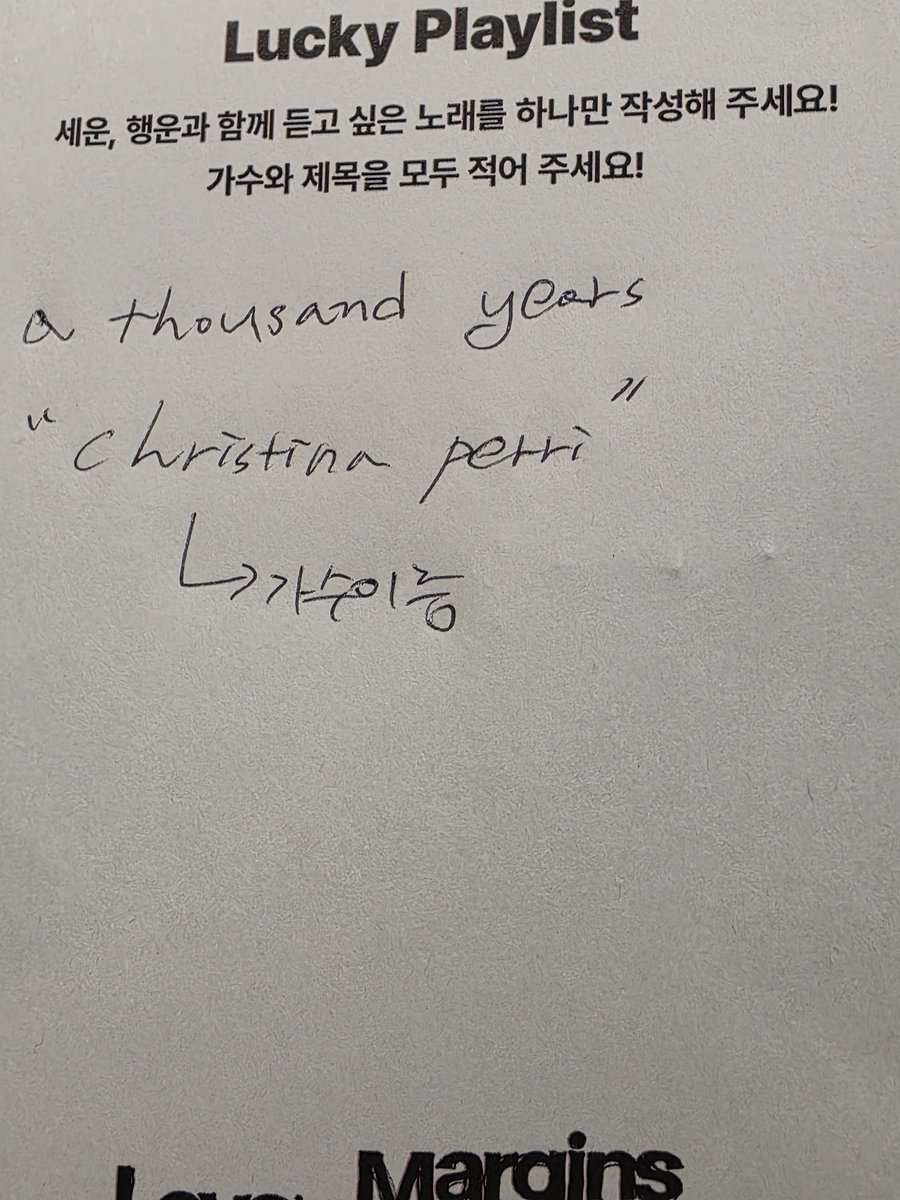 Lucky Playlist
세운, 행운과 함께 듣고 싶은 노래를 하나만 작성해 주세요!
가수와 제목을 모두 적어 주세요!
a thousand years
"christina perri"
↳가수이름
Margins